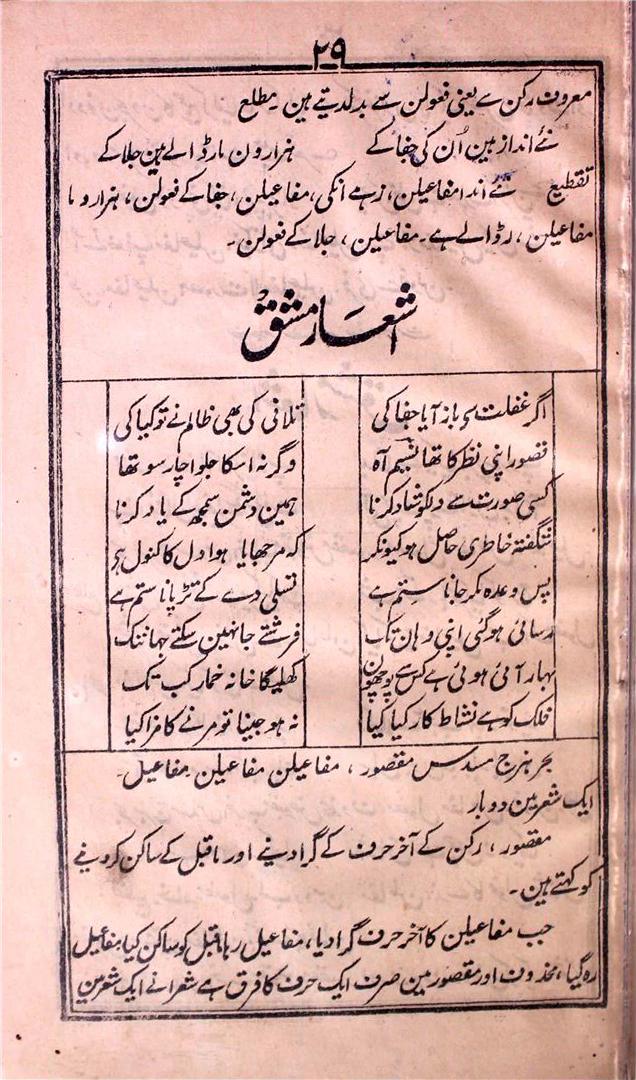 ۲۹
معروف رکن سے یعنی فعولن سے بدلدیتے ہین ۔ مطلع
نئے انداز ہین اُن کی جفا کے ہزارون مار ڈالے ہین جلا کے
تقطیع نئے اندا مفاعیلن، زہے انکی، مفاعیلن، جفا کے فعولن، ہزارو ما
مفاعیلن، رڈالے ہے۔ مفاعیلن، جلا کے فعولن۔
اشعار مشق
اگر غفلت سے باز آیا جفا کی تلافی کی بھی ظالم نے تو کیا کی
قصور اپنی نظر کا تھا نسیم آہ وگرنہ اسکا جلوا چار سو تھا
کسی صورت سے دلکو شاد کرنا ہمین دشمن سمجھ کے یاد کرنا
شگفتہ خاطری حاصل ہو کیونکر کہ مرجھایا ہوا دل کا کنول ہی
پس وعدہ مکر جانا ستم ہے تسلی دے کے تڑپانا ستم ہے
رسائی ہو گئی اپنی وہان تک فرشتے جا نہین سکتے جہانتک
بہار آئی ہوئی ہے کس سے پوچھون کھلیگا خانہ خمار کب تک
فلک کو ہے نشاط کار کیا کیا نہ ہو جینا تو مرنے کا مزا کیا
بحر ہزج مسدس مقصور، مفاعیلن مفاعیلن مفاعیل۔
ایک شعر مین دوبار
مقصور، رکن کے آخر حرف کے گرا دینے اور ماقبل کے ساکن کردینے
کو کہتے ہین۔
جب مفاعیلن کا آخر حرف گرا دیا، مفاعیل رہا ماقبل کو ساکن کیا مفاعیل
رہ گیا، محذوف اور مقصور مین صرف ایک حرف کا فرق ہے شعرا نے ایک شعر مین